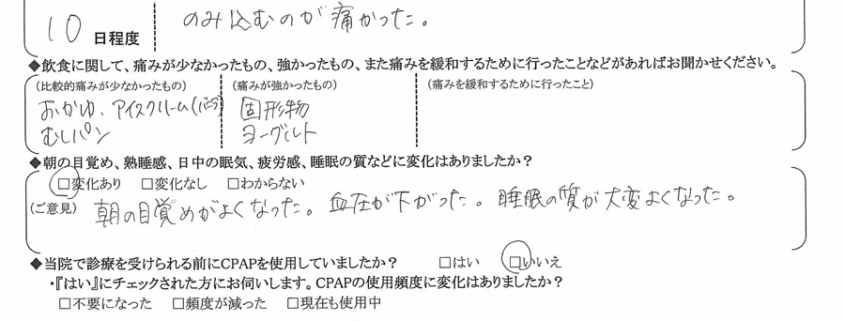 10 日程度
のみ込むのが痛かった。
◆飲食に関して、痛みが少なかったもの、強かったもの、また痛みを緩和するために行ったことなどがあればお聞かせください。
(比較的痛みが少なかったもの)
おかゆ、アイスクリーム(バニラ)
むしパン
(痛みが強かったもの)
固形物
ヨーグルト
(痛みを緩和するために行ったこと)
◆朝の目覚め、熟睡感、日中の眠気、疲労感、睡眠の質などに変化はありましたか？
□変化あり □変化なし □わからない
(ご意見) 朝の目覚めがよくなった。血圧が下がった。睡眠の質が大変よくなった。
◆当院で診療を受けられる前にCPAPを使用していましたか？ □はい □いいえ
・『はい』にチェックされた方にお伺いします。CPAPの使用頻度に変化はありましたか？
□不要になった □頻度が減った □現在も使用中